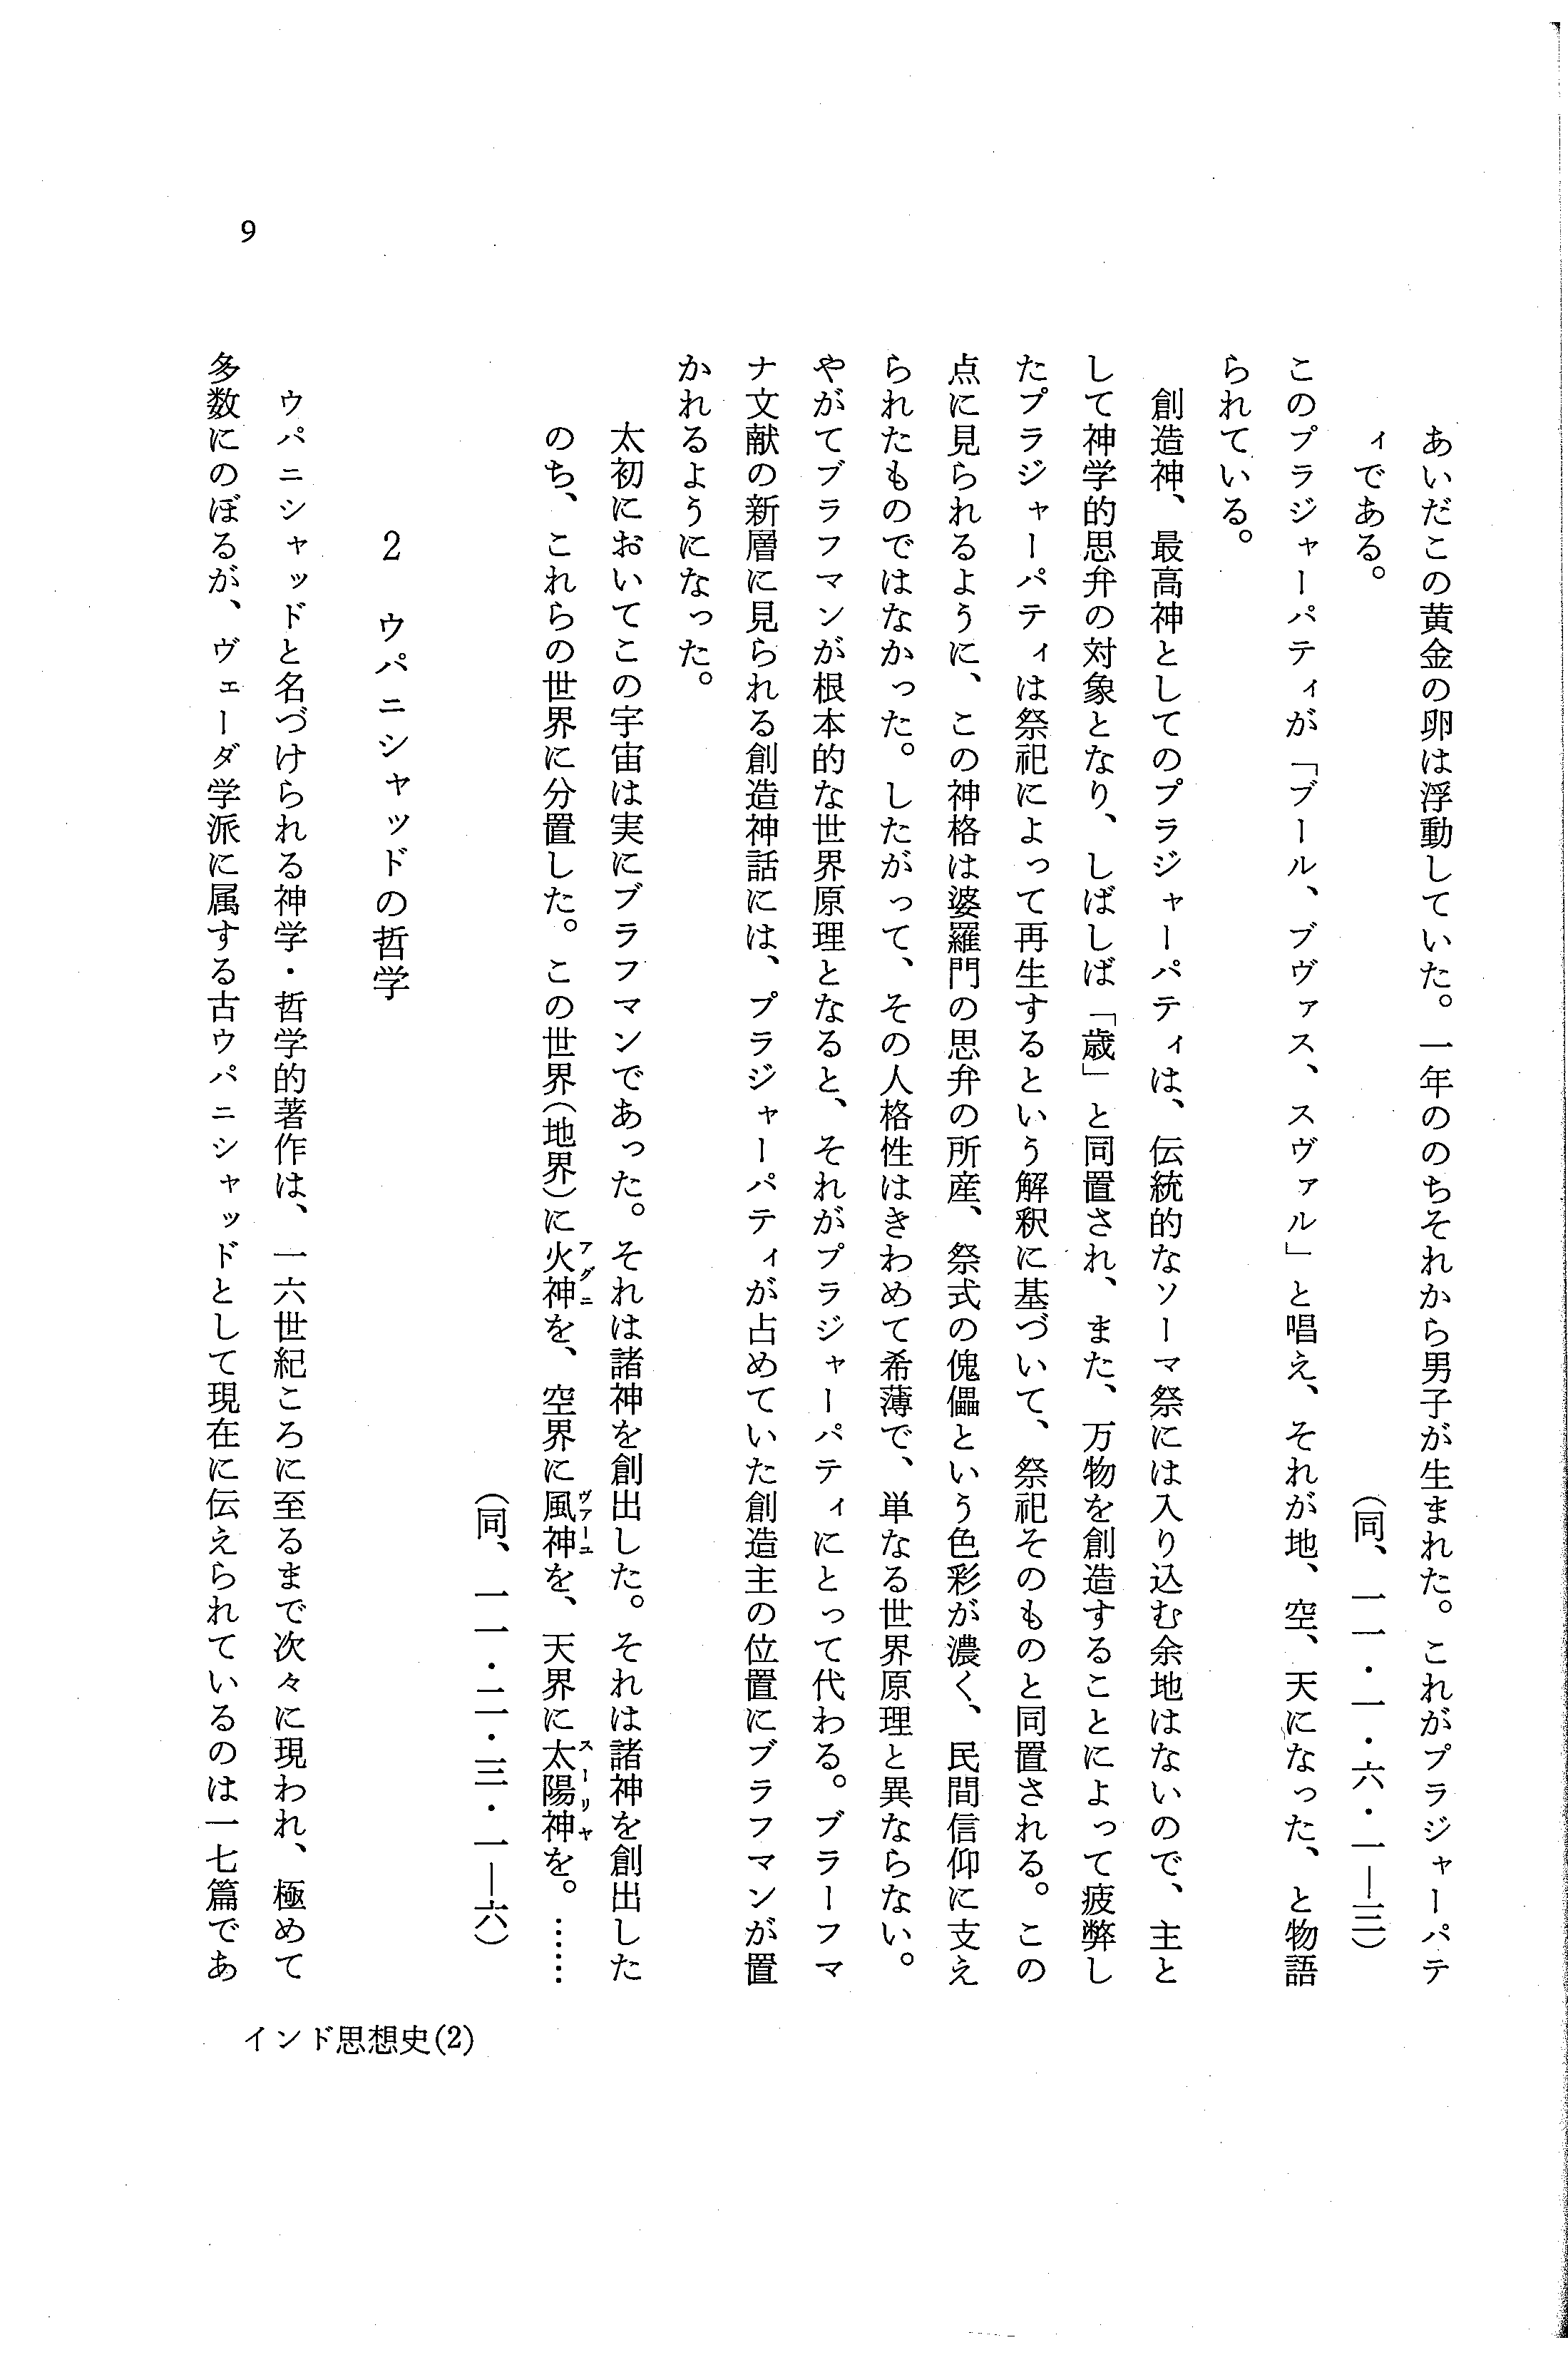 9
あいだこの黄金の卵は浮動していた。一年ののちそれから男子が生まれた。これがプラジャーパテ
ィである。　　　　　　　　　　（同、一一・一・六・一―三）
このプラジャーパティが「ブール、ブヴァス、スヴァル」と唱え、それが地、空、天になった、と物語
られている。
創造神、最高神としてのプラジャーパティは、伝統的なソーマ祭には入り込む余地はないので、主と
して神学的思弁の対象となり、しばしば「歳」と同置され、また、万物を創造することによって疲弊し
たプラジャーパティは祭祀によって再生するという解釈に基づいて、祭祀そのものと同置される。この
点に見られるように、この神格は婆羅門の思弁の所産、祭式の傀儡という色彩が濃く、民間信仰に支え
られたものではなかった。したがって、その人格性はきわめて希薄で、単なる世界原理と異ならない。
やがてブラフマンが根本的な世界原理となると、それがプラジャーパティにとって代わる。ブラーフマ
ナ文献の新層に見られる創造神話には、プラジャーパティが占めていた創造主の位置にブラフマンが置
かれるようになった。
太初においてこの宇宙は実にブラフマンであった。それは諸神を創出した。それは諸神を創出した
のち、これらの世界に分置した。この世界（地界）に火神アグニを、空界に風神ヴァーユを、天界に太陽神スーリヤを。……
（同、一一・二・三・一―六）
2　ウパニシャッドの哲学
ウパニシャッドと名づけられる神学・哲学的著作は、一六世紀ころに至るまで次々に現われ、極めて
多数にのぼるが、ヴェーダ学派に属する古ウパニシャッドとして現在に伝えられているのは一七篇であ
インド思想史(2)